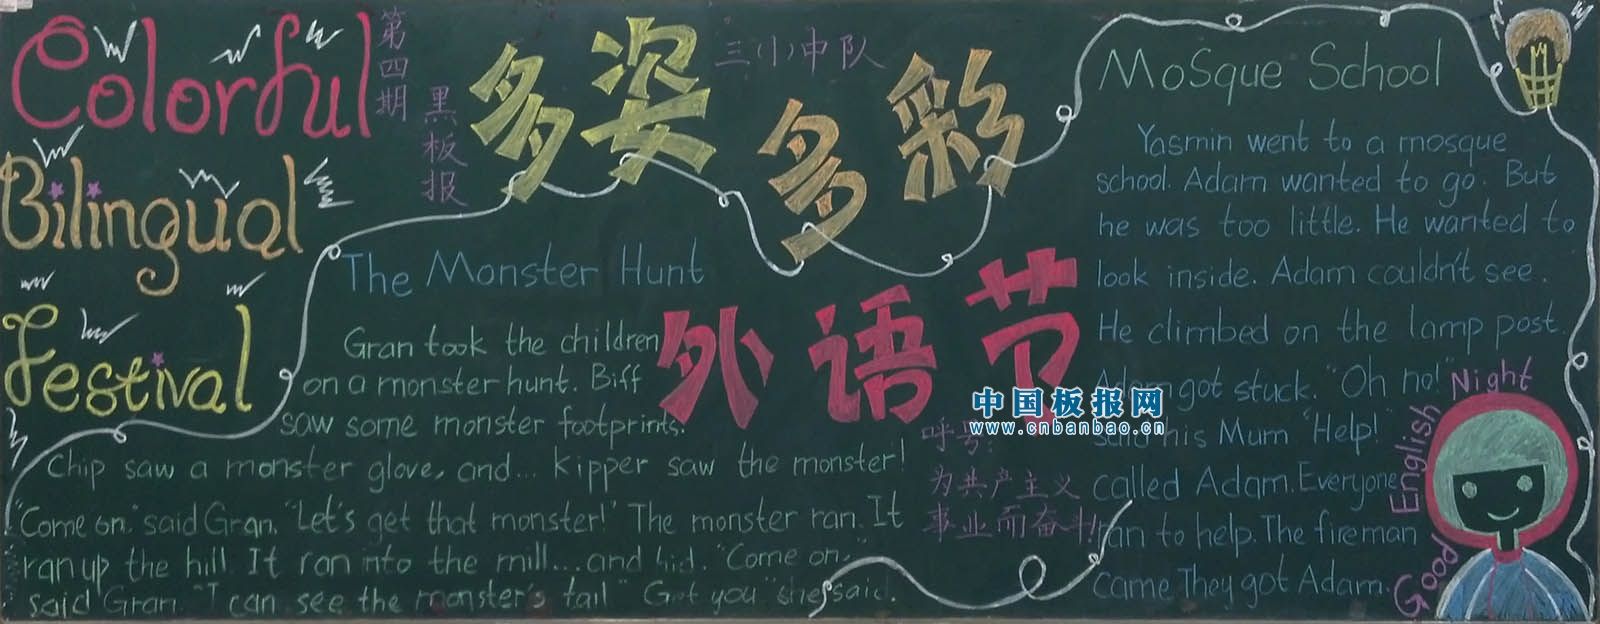 Colorful
Bilingual
Festival
第四期
黑板报
多姿
多彩
三(1)中队
外语节
The Monster Hunt
Gran took the children
on a monster hunt. Biff
saw some monster footprints.
Chip saw a monster glove, and... Kipper saw the monster!
"Come on," said Gran. "Let's get that monster!" The monster ran. It
ran up the hill. It ran into the mill...and hid. "Come on,"
said Gran. "I can see the monster's tail" "Got you" she said.
呼号:
为共产主义
事业而奋斗!
中国板报网
www.cnbanbao.cn
Mosque School
Yasmin went to a mosque
school. Adam wanted to go. But
he was too little. He wanted to
look inside. Adam couldn't see.
He climbed on the lamp post.
Adam got stuck. "Oh no!"
said his Mum "Help!"
called Adam. Everyone
ran to help. The fireman
came They got Adam.
Good English Night